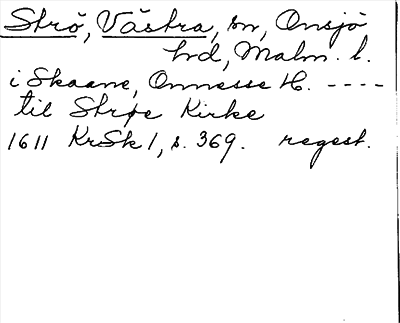 Strö, Västra, sn, Onsjö
hd, Malm. l.
i Skaane, Onnesse H. ----
til Strøe Kirke
1611 KrSk 1, s. 369. regest.